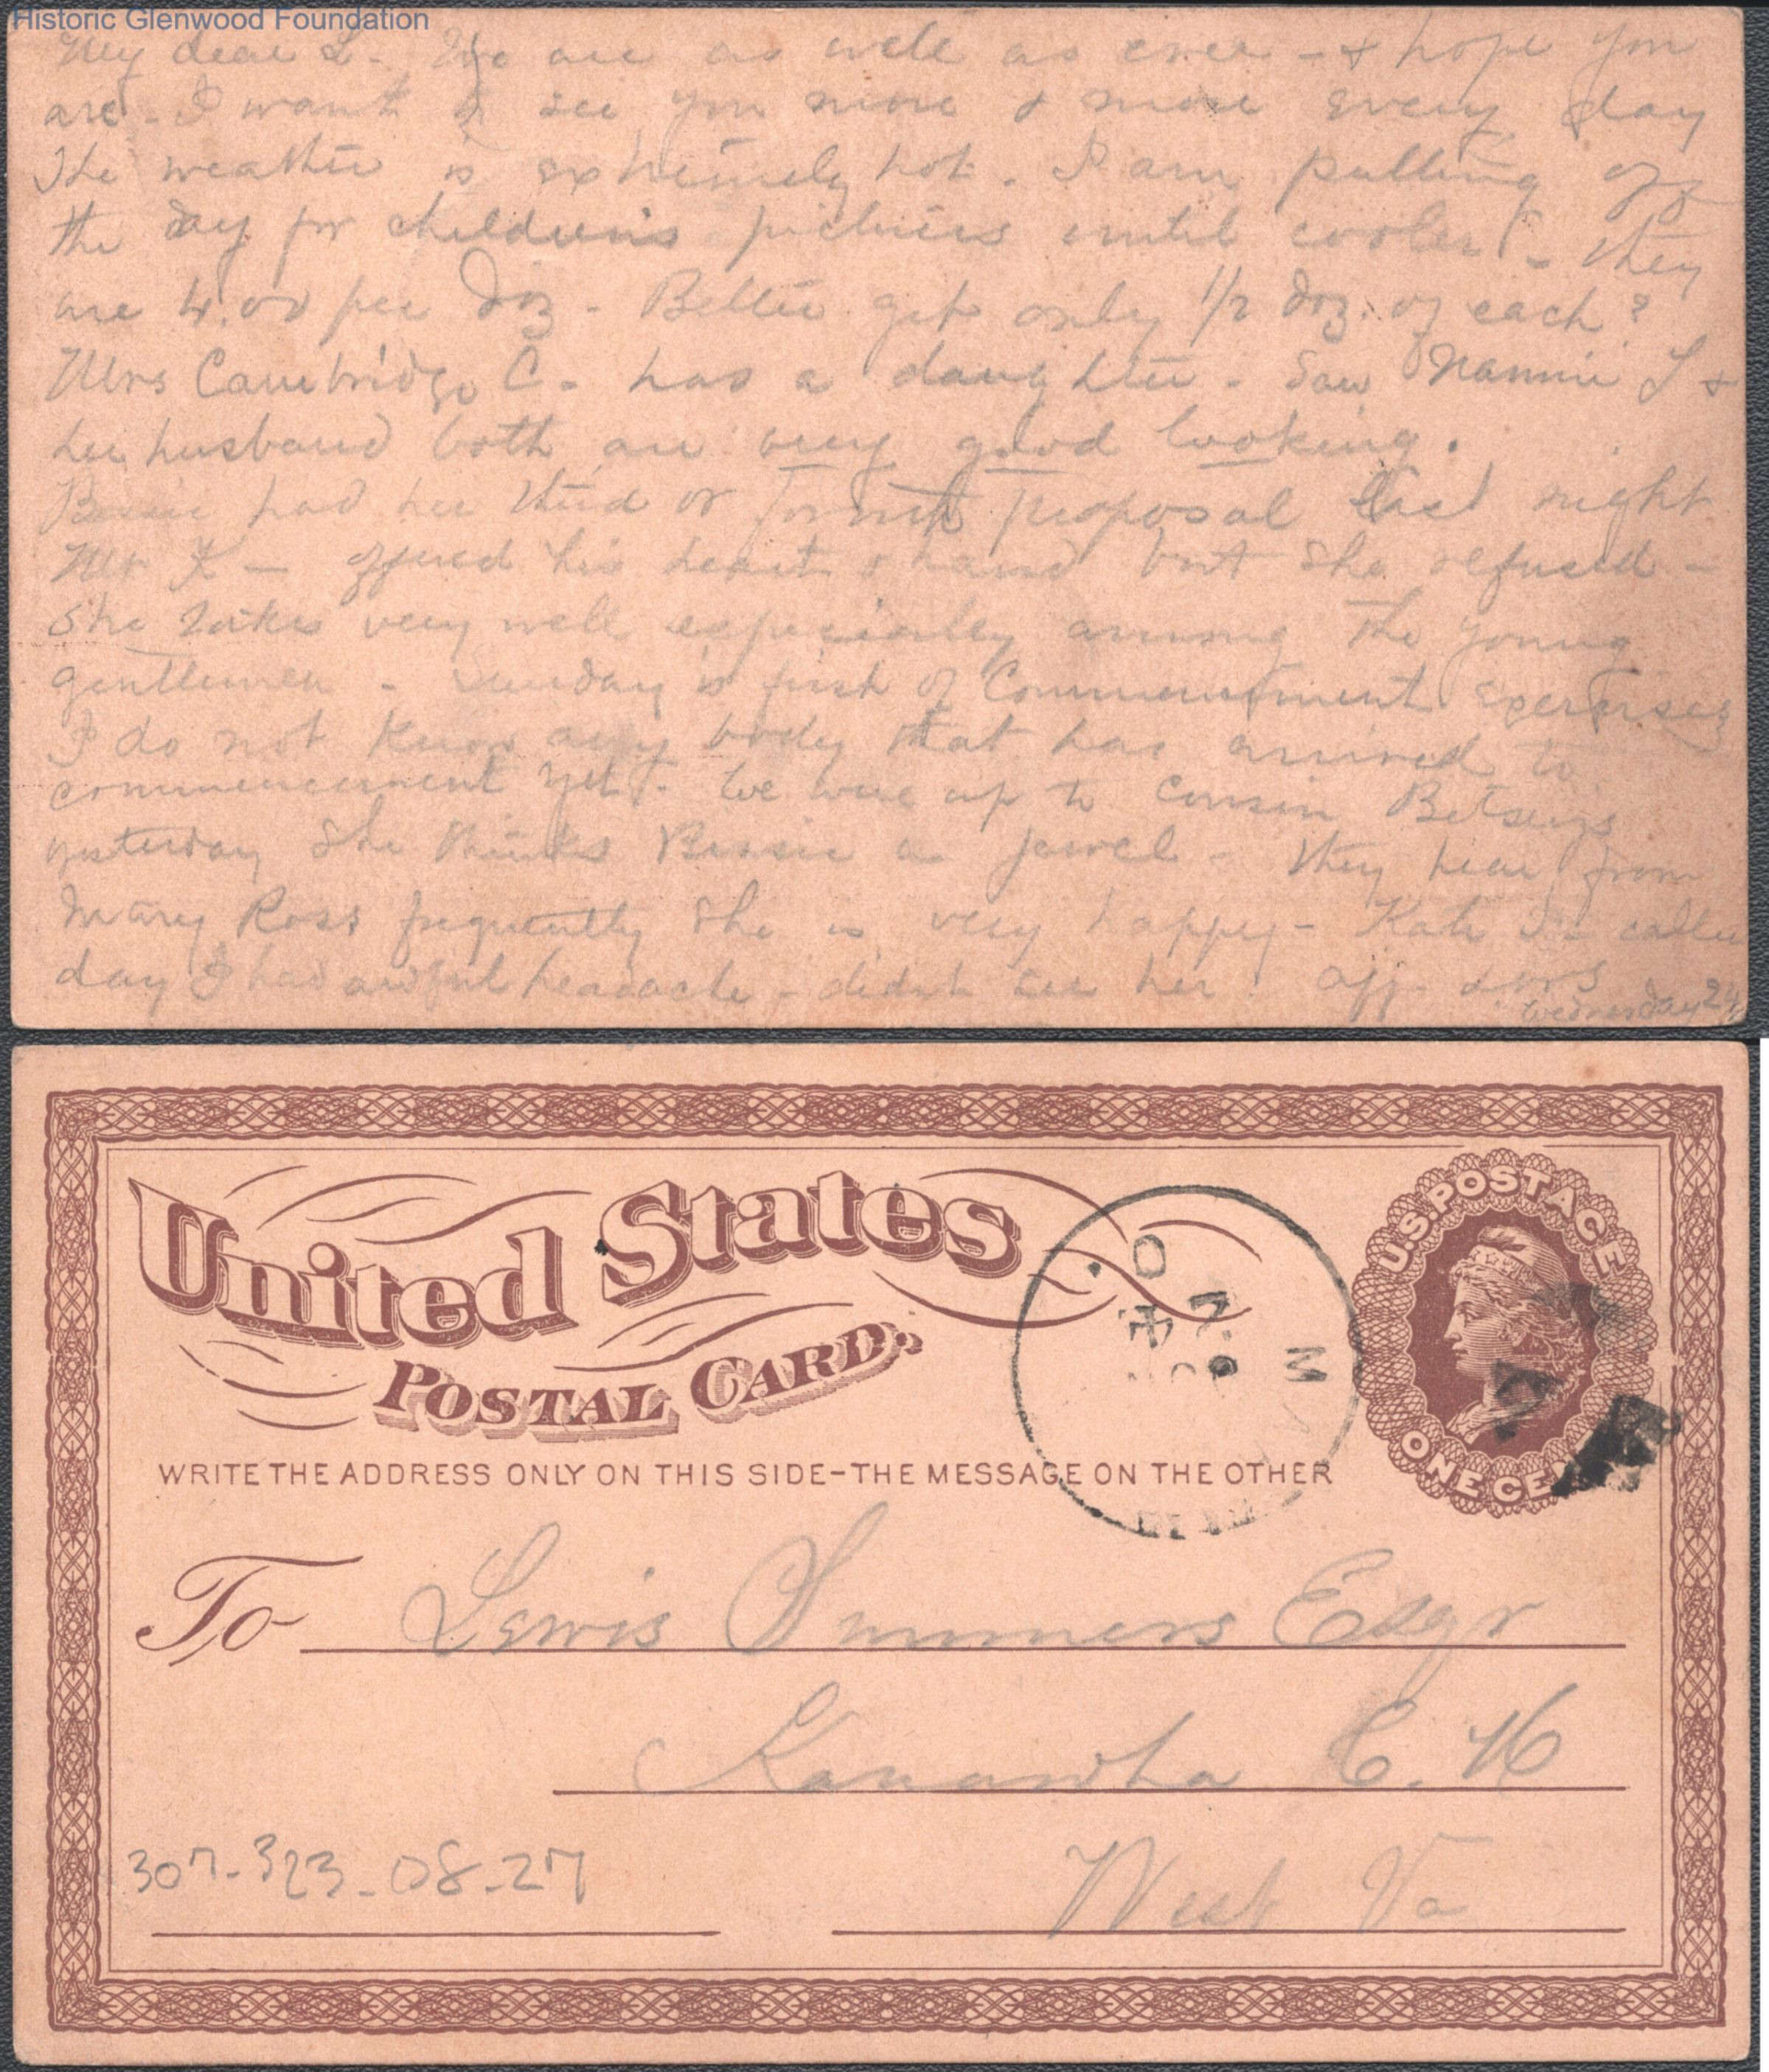 Historic Glenwood Foundation
My dear L. We are as well as ever - & hope you
are - I want to see you more & more every day
The weather is extremely hot. I am putting off
the day for children's pictures until cooler - they
are 4.00 per doz - Better get only 1/2 doz. of each?
Mrs Cambridge C. has a daughter - Saw Nannie L &
her husband both are very good looking.
Bessie had her third or fourth proposal last night
Mr K - offered his heart & hand but she refused -
She takes very well especially among the young
gentlemen - Sunday is first of Commencement exercises
I do not know any body that has arrived to
commencement yet - We were up to Cousin Betsey's
yesterday she thinks Bessie a jewel - they hear from
Mary Ross frequently she is very happy - Kate called
day I had awful headache - didn't see her! Aff.
Wednesday 24
United States
Postal Card.
U.S. POSTAGE
ONE CENT
WRITE THE ADDRESS ONLY ON THIS SIDE-THE MESSAGE ON THE OTHER
To Lewis Summers Esqr
Kanawha C. H
307-323-08-27
West Va